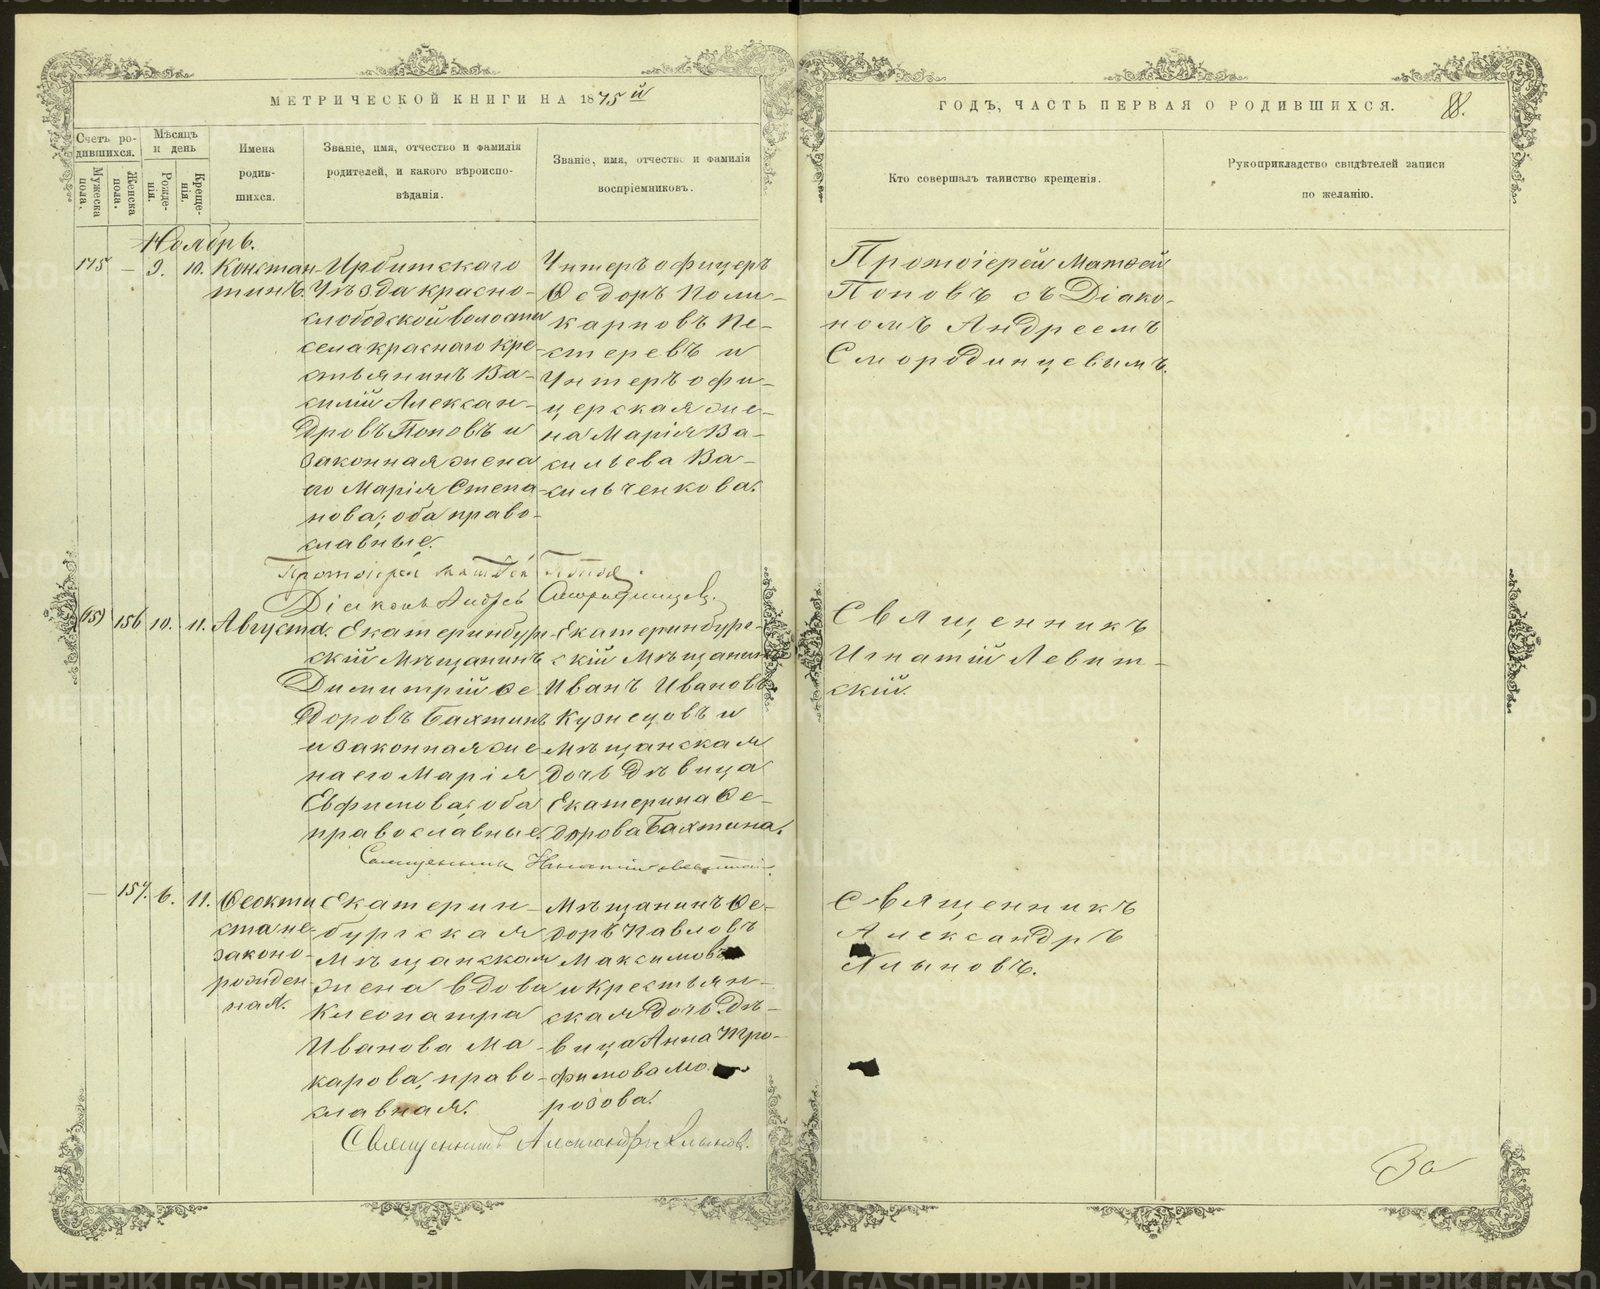 МЕТРИЧЕСКОЙ КНИГИ НА 1875й
ГОДЪ, ЧАСТЬ ПЕРВАЯ О РОДИВШИХСЯ.
88.
Счетъ родившихся.
Мужеска пола.
Женска пола.
Мѣсяцъ и день
Рожденія.
Крещенія.
Имена
родив-
шихся.
Званіе, имя, отчество и фамилія
родителей, и какого вѣроиспо-
вѣданія.
Званіе, имя, отчество и фамилія
воспріемниковъ.
Кто совершалъ таинство крещенія.
Рукоприкладство свидѣтелей записи
по желанію.
Ноябрь.
175 — 9. 10. Констан-
тинъ.
Ирбитскаго
Уѣзда красно-
слободской волости
села краснаго кре-
стьянинъ Ва-
силій Алексан-
дровъ Поповъ и
законная жена
его Марія Степа-
нова; оба право-
славные.
Унтеръ офицеръ
Ѳедоръ Поли-
карповъ Пе-
стеревъ и
Унтеръ офи-
церская же-
на Марія Ва-
сильева Ва-
сильченкова.
Протоіерей Матѳей
Поповъ съ Діако-
номъ Андреемъ
Смородинцевымъ.
Протоіерей Матѳей Поповъ.
Діаконъ Андрей Смородинцевъ.
156 10. 11. Августа.
Екатеринбург-
скій Мѣщанинъ
Димитрій Ѳе
доровъ Бахтинъ
и законная же
на его Марія
Евфимова; оба
православные.
Екатеринбург-
скій Мѣщанинъ
Иванъ Ивановъ
Кузнецовъ и
Мѣщанская
дочь дѣвица
Екатерина Ѳе-
дорова Бахтина.
Священникъ
Игнатій Левит-
скій.
Священникъ Игнатій Левитскій.
— 157. 6. 11. Ѳеокти
ста не-
законо-
рожден-
ная.
Екатерин-
бургская
Мѣщанская
жена вдова
Клеопатра
Иванова Ма-
карова, право-
славная.
Мѣщанинъ Ѳе-
доръ Павловъ
Максимовъ
и крестьян-
ская дочь дѣ-
вица Анна Тро-
фимова Мо-
розова.
Священникъ
Александръ
Хлыновъ.
Священникъ Александръ Хлыновъ.
За
METRIKI.GASO-URAL.RU